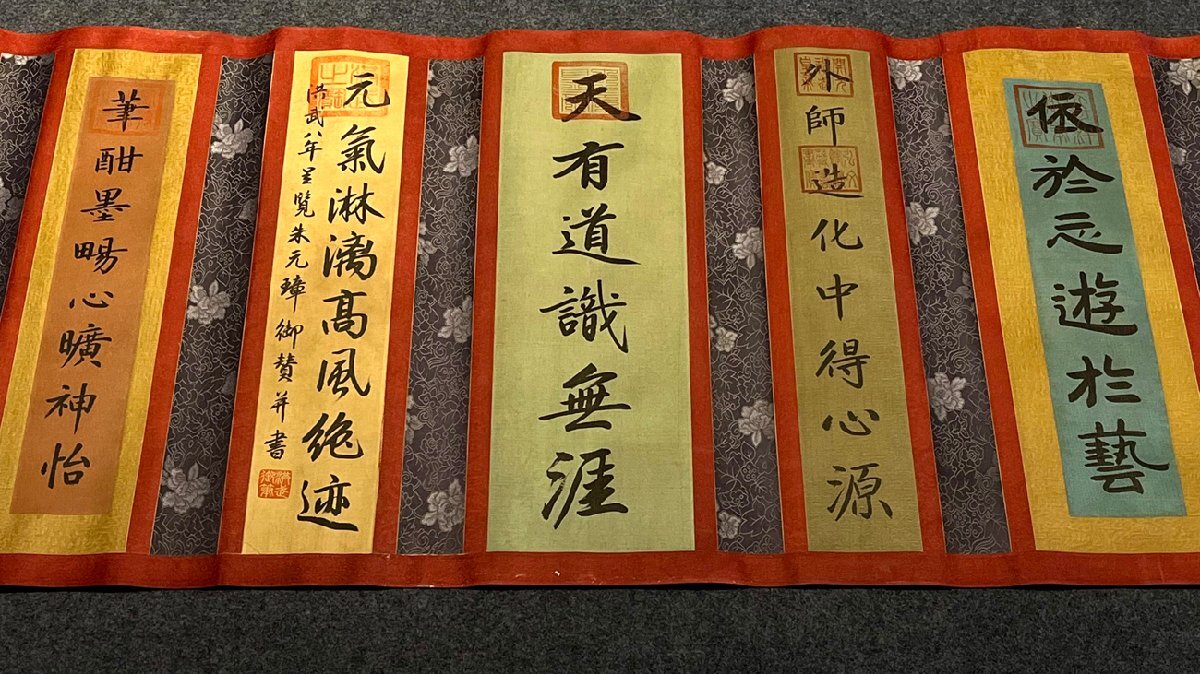 依於忈遊於藝
外師造化中得心源
天有道識無涯
元氣淋漓髙風絶迹
洪武八年呈覽朱元璋御賛并書
筆酣墨畼心曠神怡